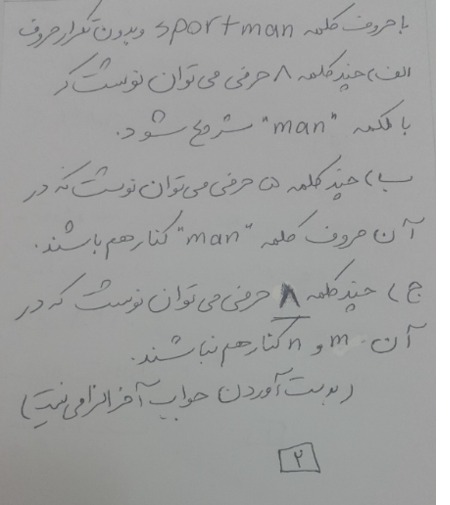 با حروف کلمه sportman و بدون تکرار حروف
الف) چند کلمه ۸ حرفی می توان نوشت که
با کلمه "man" شروع شود.
ب) چند کلمه ۵ حرفی می توان نوشت که در
آن حروف کلمه "man" کنار هم باشند.
ج) چند کلمه ۸ حرفی می توان نوشت که در
آن m و n کنار هم نباشند.
(بدست آوردن جواب آخر الزامی نیست)
۲